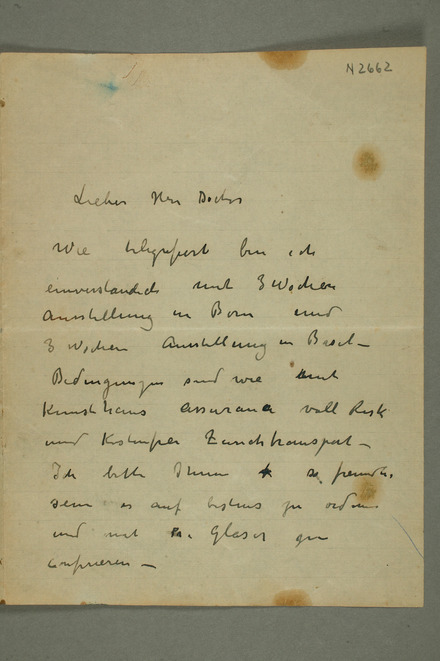 N2662
Lieber Herr Doctor
Wie telegrafiert bin ich
einverstanden mit 3 Wochen
Ausstellung in Bern und
3 Wochen Ausstellung in Basel –
Bedingungen sind wie mit
Kunsthaus assurance voll Risk
und Kostenfrei Zurücktransport –
Ich bitte Ihnen so freundl.
sein es auf bestens zu ordnen
und mit Glaser zu
conferieren –